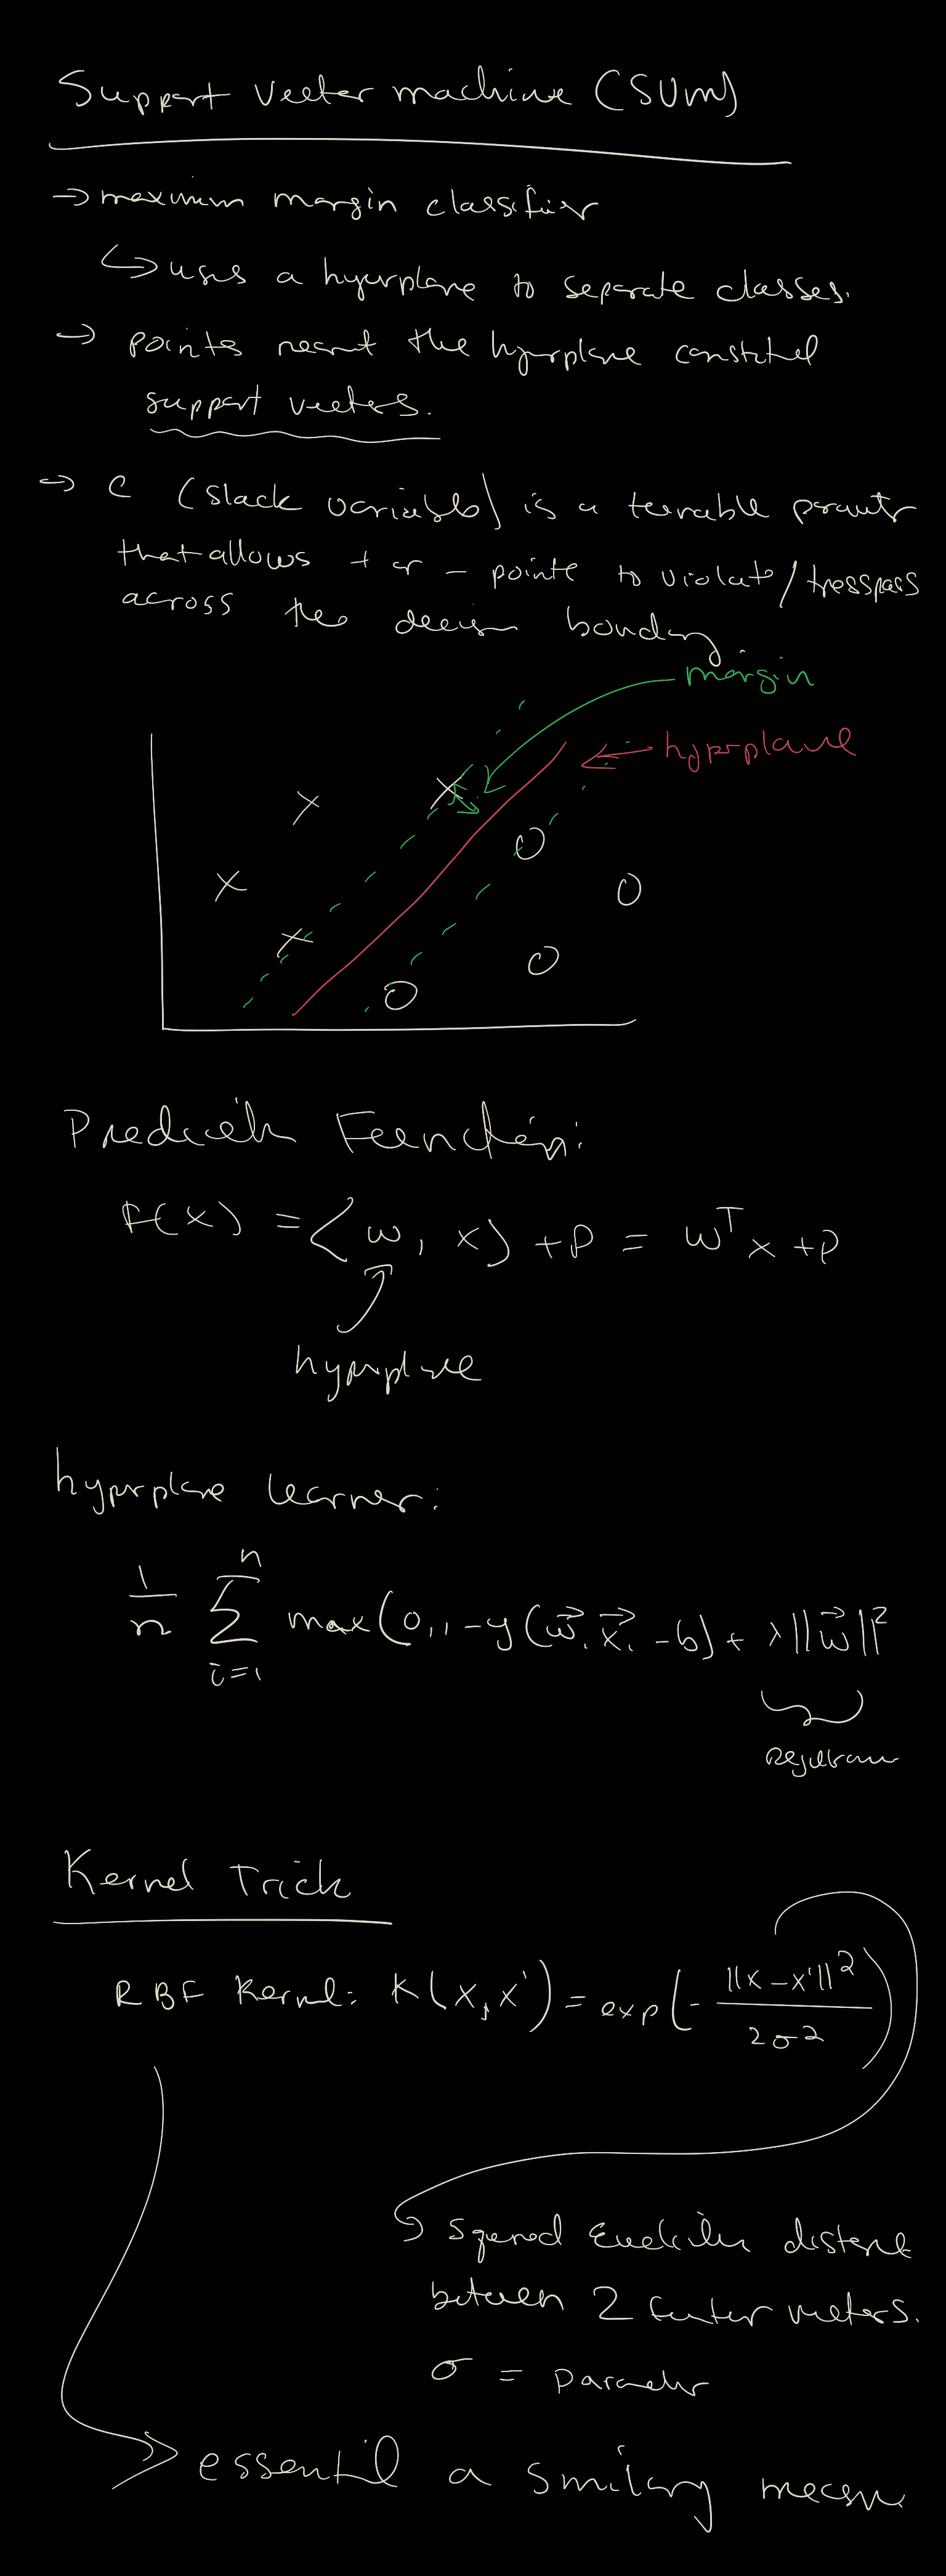 Support Vector machine (SVM)
→ maximum margin classifier
↳ uses a hyperplane to separate classes.
→ points nearest the hyperplane constitute
support vectors.
→ C (slack variable) is a tunable parameter
that allows + or - points to violate/tresspass
across the decision boundary.
margin
hyperplane
X X X X
O O O O
Prediction Function:
f(x) = ⟨w, x⟩ + ρ = wᵀx + ρ
hyperplane
hyperplane learner:
1/n Σ_{i=1}^{n} max(0, 1 - y(w⃗. x⃗. - b) + λ||w⃗||²
Kernel Trick
RBF Kernel: K(x, x') = exp(- ||x - x'||² / 2σ²)
↳ squared Euclidean distance
between 2 feature vectors.
σ = parameter
→ essential a similary measure